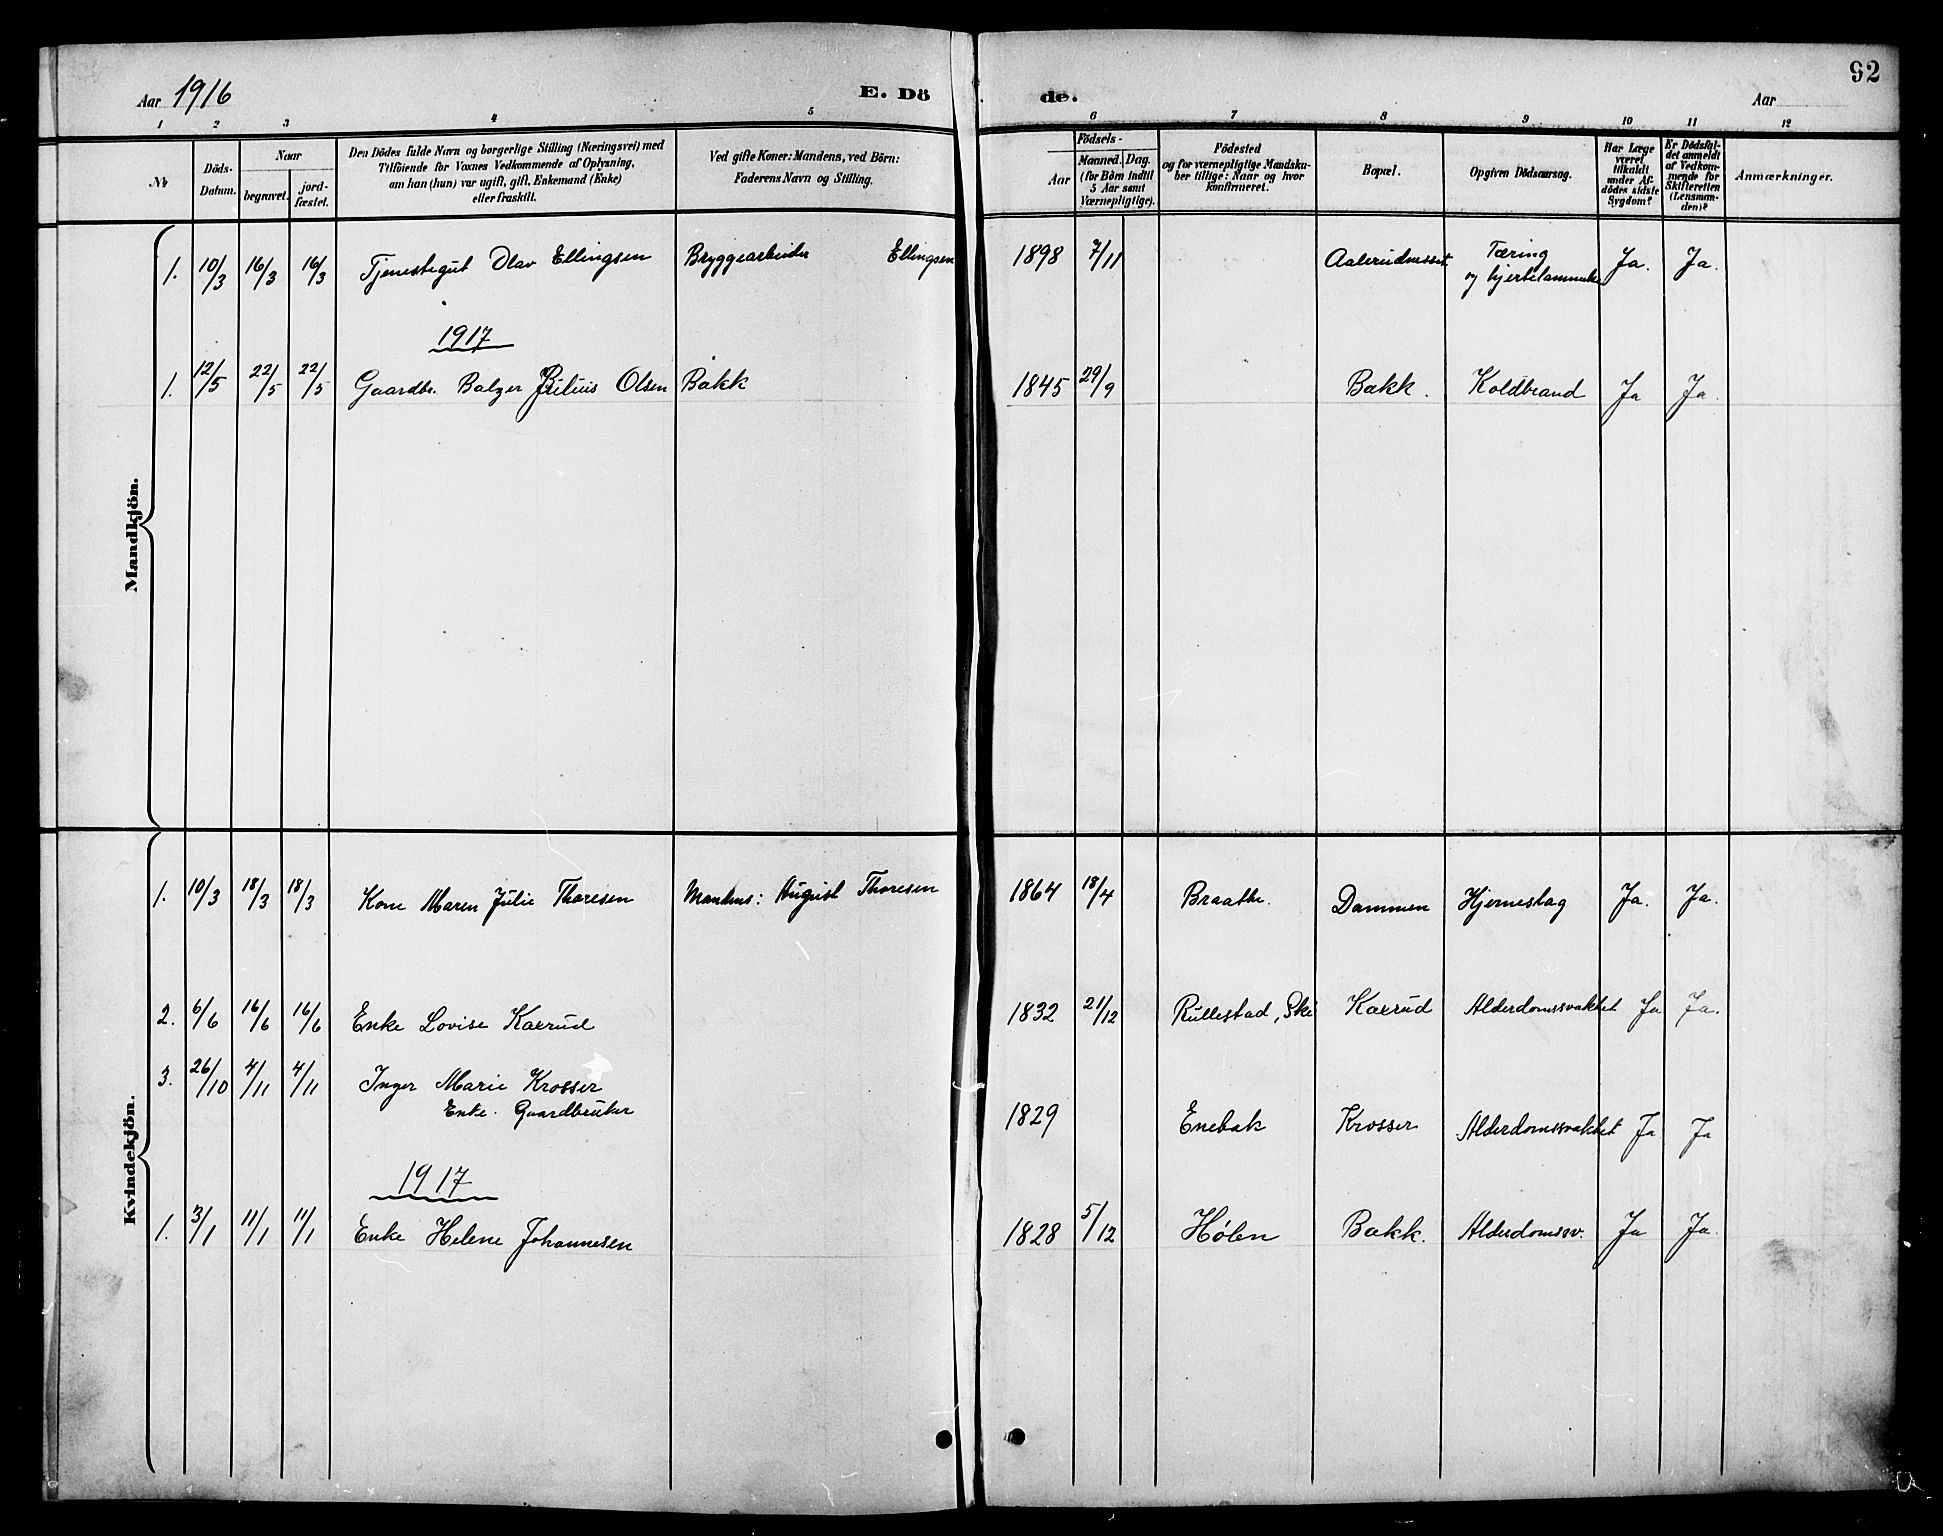 Aar 1916
E. Dö
de.
Aar
92
1 2 3 4 5 6 7 8 9 10 11 12
No
Döds-
Datum.
Naar
begravet.
jord-
fæstet.
Den Dödes fulde Navn og borgerlige Stilling (Næringsvei) med
Tilföiende for Voxnes Vedkommende af Oplysning,
om han (hun) var ugift, gift, Enkemand (Enke)
eller fraskilt.
Ved gifte Koner: Mandens, ved Börn:
Faderens Navn og Stilling.
Födsels-
Aar
Maaned. Dag.
(for Börn indtil
5 Aar samt
Værnepligtige).
Födested
og for værnepligtige Mandska-
ber tillige: Naar og hvor
konfirmeret.
Bopæl.
Opgiven Dödsaarsag.
Har Læge
været
tilkaldt
under Af-
dödes sidste
Sygdom?
Er Dödsfal-
det anmeldt
af Vedkom-
mende for
Skifteretten
(Lensman-
den)?
Anmærkninger.
Mandkjön.
1. 10/3 16/3 16/3 Tjenestegut Olav Ellingsen Bryggearbeider Ellingsen 1898 7/11 Tæring Ja. Ja.
1917
1. 12/5 22/5 22/5 Gaardbr. Balzer Julius Olsen Bakk 1845 29/9 Bakk. Koldbrand Ja Ja.
Kvindekjön.
1. 10/3 18/3 18/3 Kone Maren Julie Thoresen Mandens: August Thoresen 1864 18/4 Braathe. Dammen Hjerneslag Ja. Ja.
2. 6/6 16/6 16/6 Enke Lovise Kaerud 1832 21/12 Rullestad, Ski Kaerud Alderdomssvakhet Ja Ja.
3. 26/10 4/11 4/11 Inger Marie Krosser
Enke. Gaardbruker 1829 Enebak Krosser Alderdomssvakhet Ja Ja
1917
1. 3/1 11/1 11/1 Enke Helene Johannesen 1828 5/12 Hølen Bakk. Alderdomssv. Ja Ja.